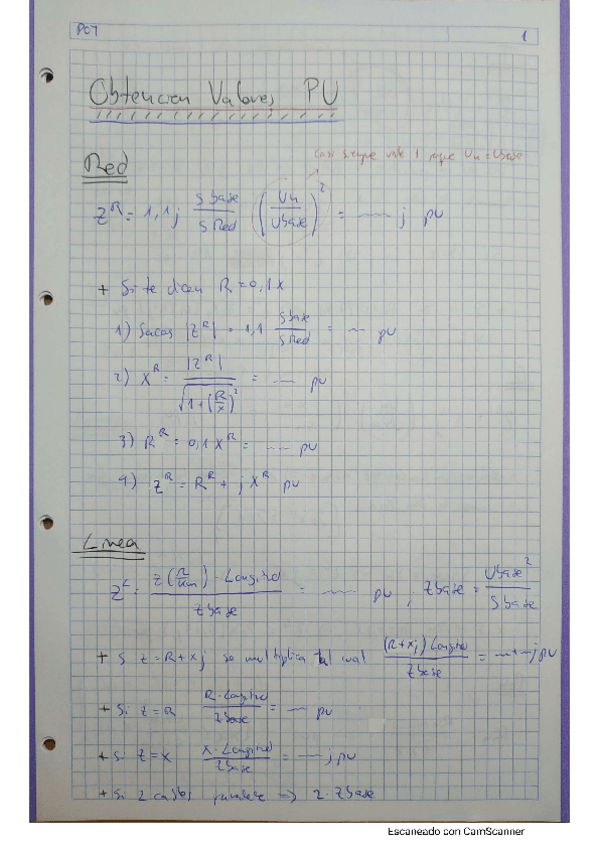 POT 1
Obtencion Valores PU
casi siempre vale 1 porque Un = Ubase
Red
Z^R = 1,1j Sbase/SRed (Un/Ubase)^2 = —— j pu
+ Si te dicen R = 0,1X
1) Sacas |Z^R| = 1,1 Sbase/SRed = — pu
2) X^R = |Z^R| / √(1+(R/X)^2) = —— pu
3) R^R = 0,1 X^R = —— pu
4) Z^R = R^R + j X^R pu
Linea
Z^L = Z(Ω/km) · Longitud / Zbase = —— pu, Zbase = Ubase^2 / Sbase
+ Si Z = R + Xj se multiplica tal cual (R+Xj) Longitud / Zbase = —+—j pu
+ Si Z = R R · Longitud / Zbase = —— pu
+ Si Z = X X · Longitud / Zbase = —— j pu
+ Si 2 cables => 2 · Zbase
Escaneado con CamScanner